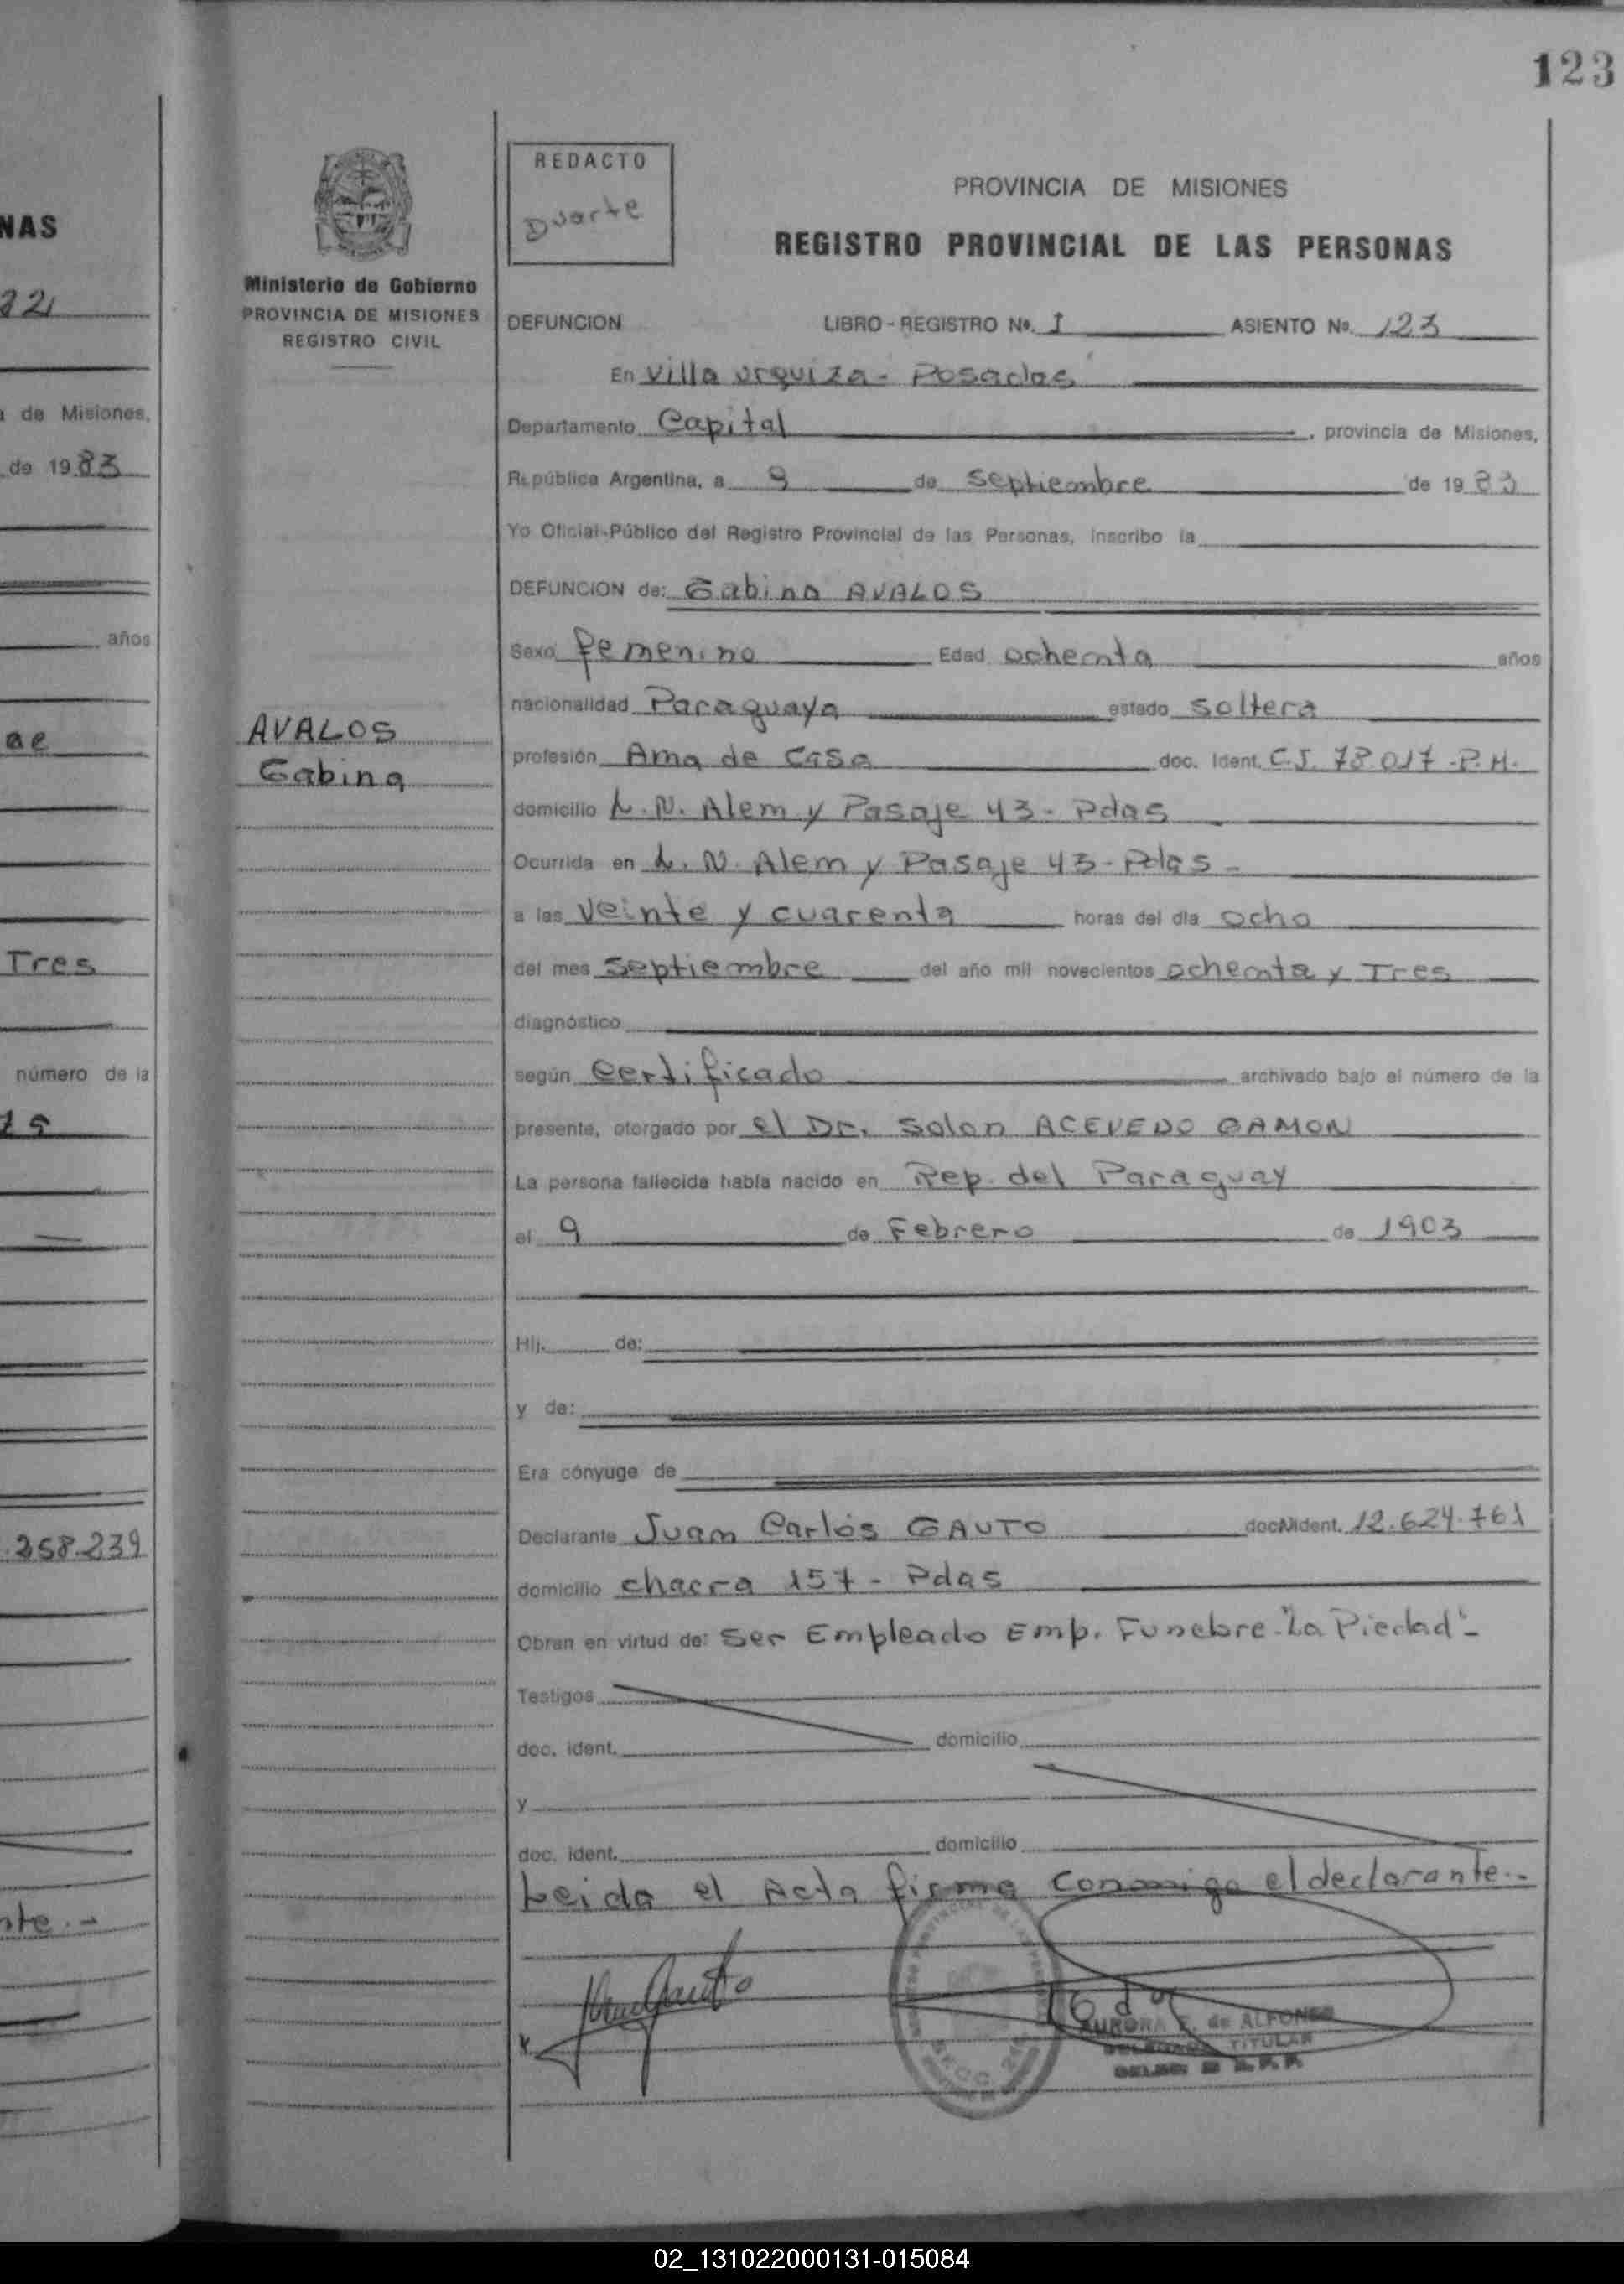 123
NAS
22
a de Misiones,
de 1983
años
ae
Tres
número de la
258.239
nte.-
Ministerio de Gobierno
PROVINCIA DE MISIONES
REGISTRO CIVIL
AVALOS
Gabina
REDACTO
Duarte
PROVINCIA DE MISIONES
REGISTRO PROVINCIAL DE LAS PERSONAS
DEFUNCION LIBRO - REGISTRO Nº. I ASIENTO Nº. 123
En Villa Urquiza - Posadas
Departamento Capital , provincia de Misiones,
República Argentina, a 9 de Septiembre de 1983
Yo Oficial-Público del Registro Provincial de las Personas, inscribo la
DEFUNCION de: Gabina AVALOS
Sexo femenino Edad ochenta años
nacionalidad Paraguaya estado soltera
profesión Ama de Casa doc. Ident. C.I. 78.017 - P.M.
domicilio L.N. Alem y Pasaje 43 - Pdas
Ocurrida en L.N. Alem y Pasaje 43 - Pdas -
a las Veinte y cuarenta horas del día ocho
del mes Septiembre del año mil novecientos ochenta y Tres
diagnóstico
según Certificado archivado bajo el número de la
presente, otorgado por el Dr. Solon ACEVEDO GAMON
La persona fallecida había nacido en Rep. del Paraguay
el 9 de Febrero de 1903
Hij. de:
y de:
Era cónyuge de
Declarante Juan Carlos GAUTO doc. ident. 12.624.761
domicilio chacra 157 - Pdas
Obran en virtud de: Ser Empleado Emp. Funebre "La Piedad" -
Testigos
doc. ident. domicilio
y
doc. ident. domicilio
Leida el Acta firma Conmigo el declarante.-
AURORA E. de ALFONSO
DELEGADA TITULAR
02_131022000131-015084